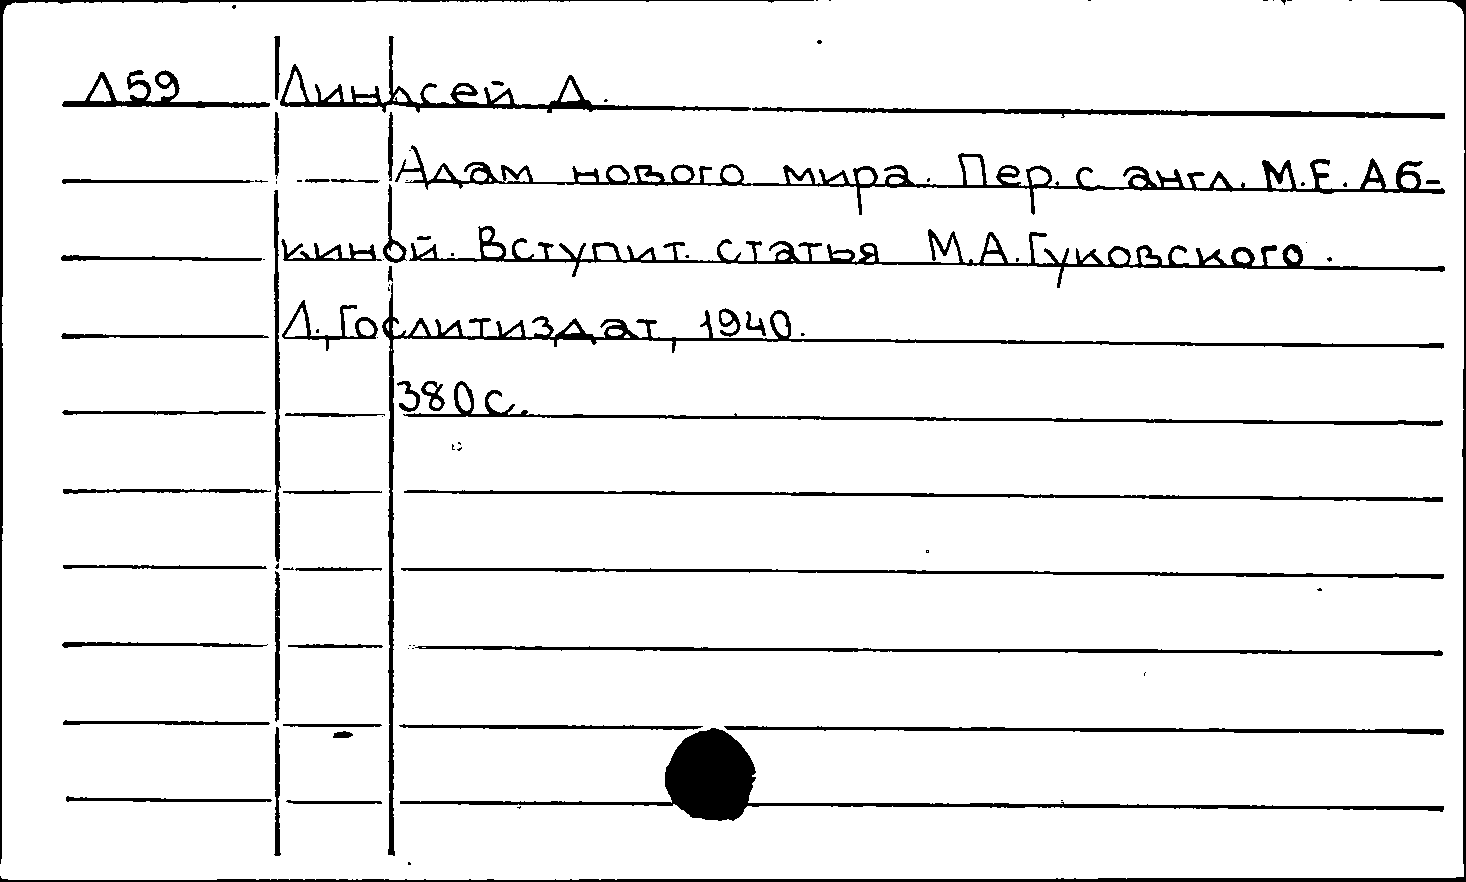 Л59 Линдсей Д.
Адам нового мира. Пер. с англ. М.Е. Аб-
киной. Вступит. статья М.А. Гуковского.
Л., Гослитиздат, 1940.
380 с.